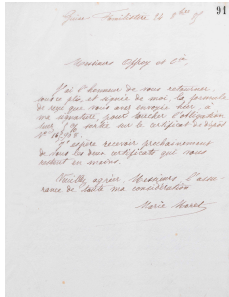 91
Guise Familistère 26 9bre 95
Messieurs Offroy et Cie
J'ai l'honneur de vous retourner
sous ce pli, et signée de moi, la formule
de reçu que vous avez envoyée hier, à
ma signature, pour toucher l'obligation
sortie sur le certificat de dépôt
J'espère recevoir prochainement
de vous les deux certificats qui vous
restent en mains.
Veuillez agréer Messieurs l'assu-
rance de toute ma considération
Marie Moret